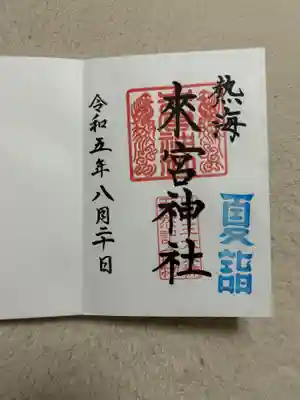 熱海
夏詣
來宮神社
令和五年八月二十日